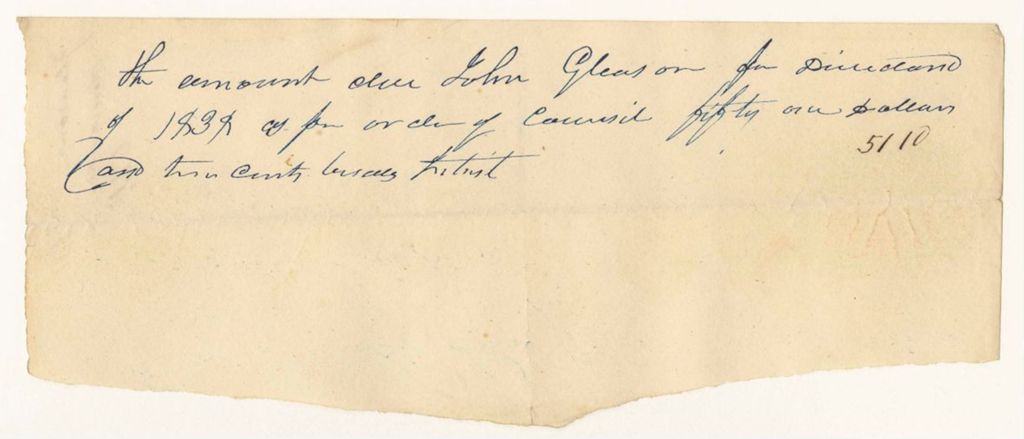 the amount due John Gleason for Dividand
of 1839 as per order of Council fifty one Dollars
5110
and ten cents besids Intrist